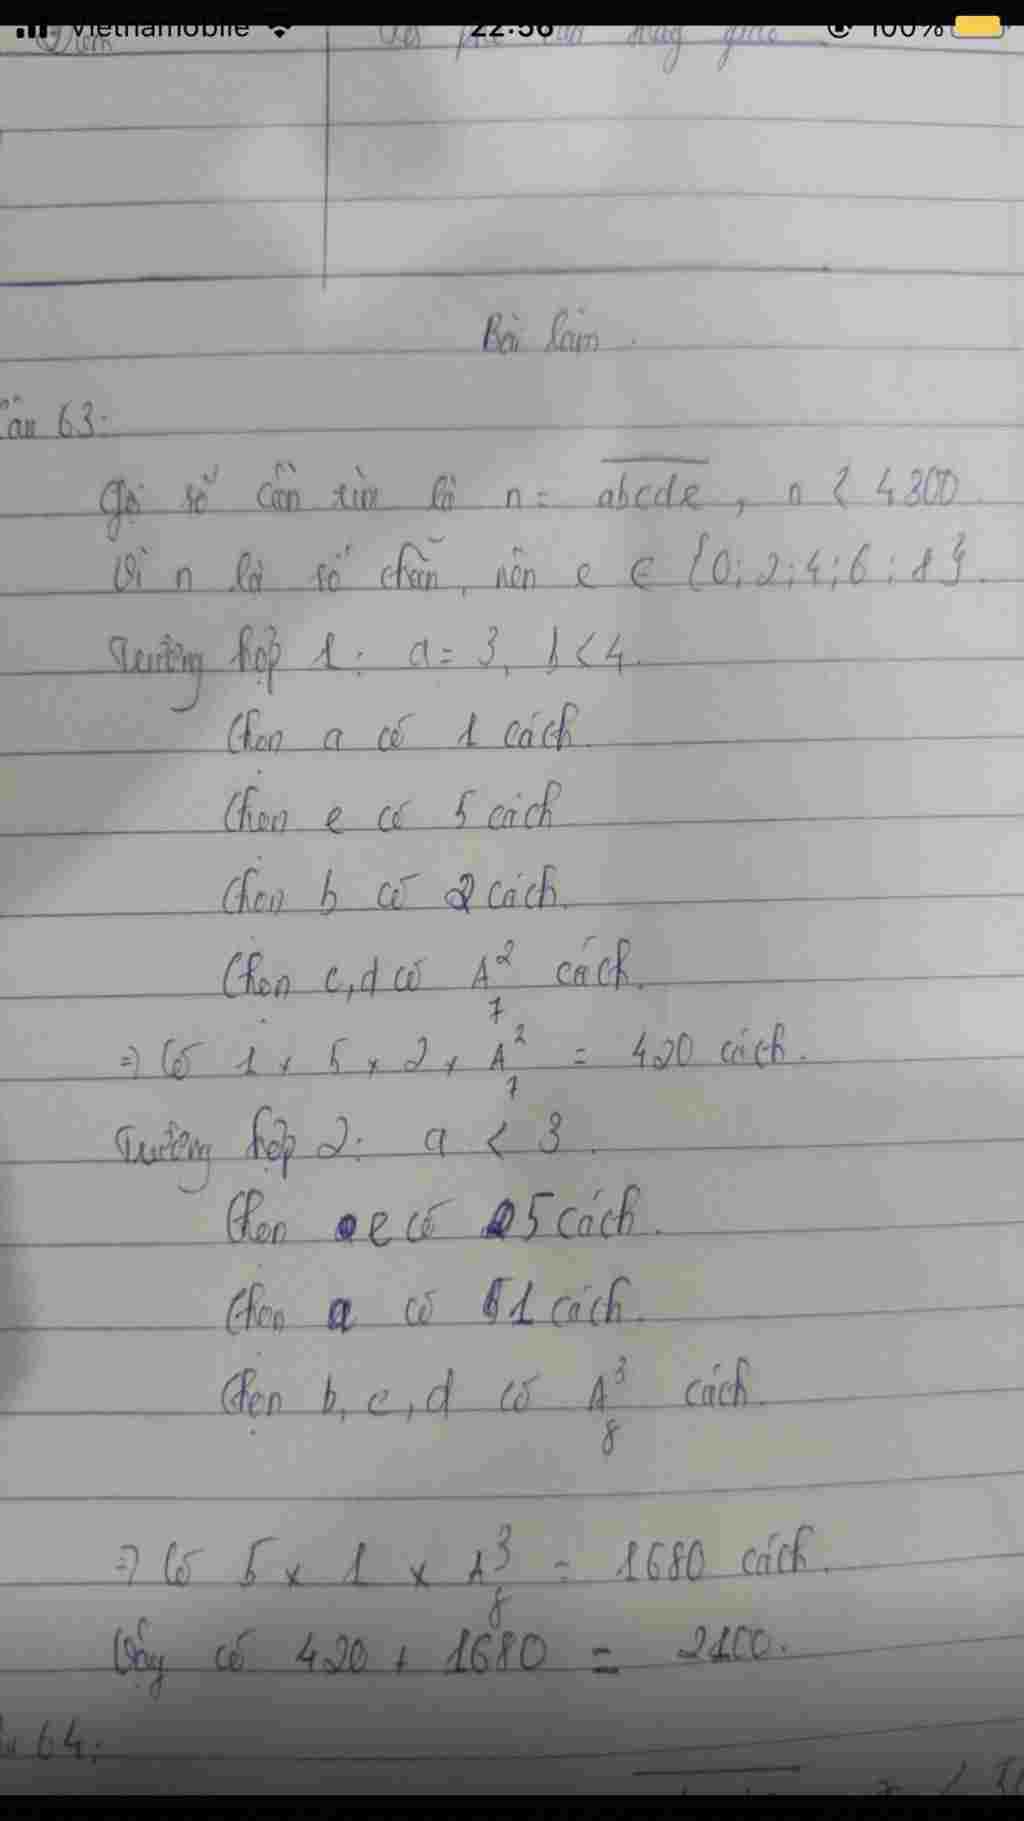 Vietnamobile 22:56 100%
Bài làm.
Câu 63:
Gọi số cần tìm là n = abcde, n < 4300
Vì n là số chẵn, nên e ∈ {0; 2; 4; 6; 8}.
Trường hợp 1: a = 3, b < 4.
Chọn a có 1 cách.
Chọn e có 5 cách
Chọn b có 2 cách.
Chọn c, d có A²₇ cách.
⇒ Có 1 × 5 × 2 × A²₇ = 420 cách.
Trường hợp 2: a < 3.
Chọn e có 5 cách.
Chọn a có 1 cách.
Chọn b, c, d có A³₈ cách.
⇒ Có 5 × 1 × A³₈ = 1680 cách.
Vậy có 420 + 1680 = 2100.
64: